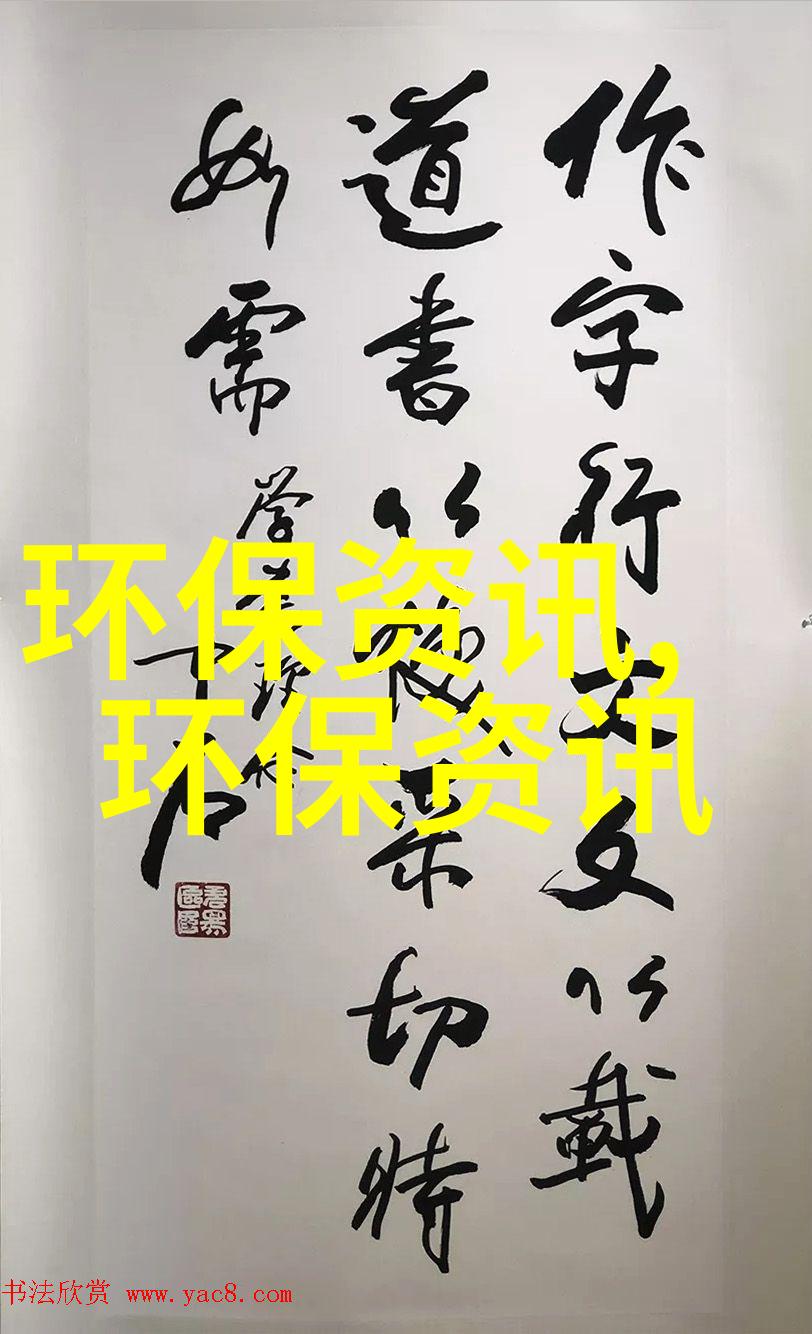 作字行文文以載
道書以采切時
如需
环保资讯,
环保资讯
书法欣赏 www.yac8.com